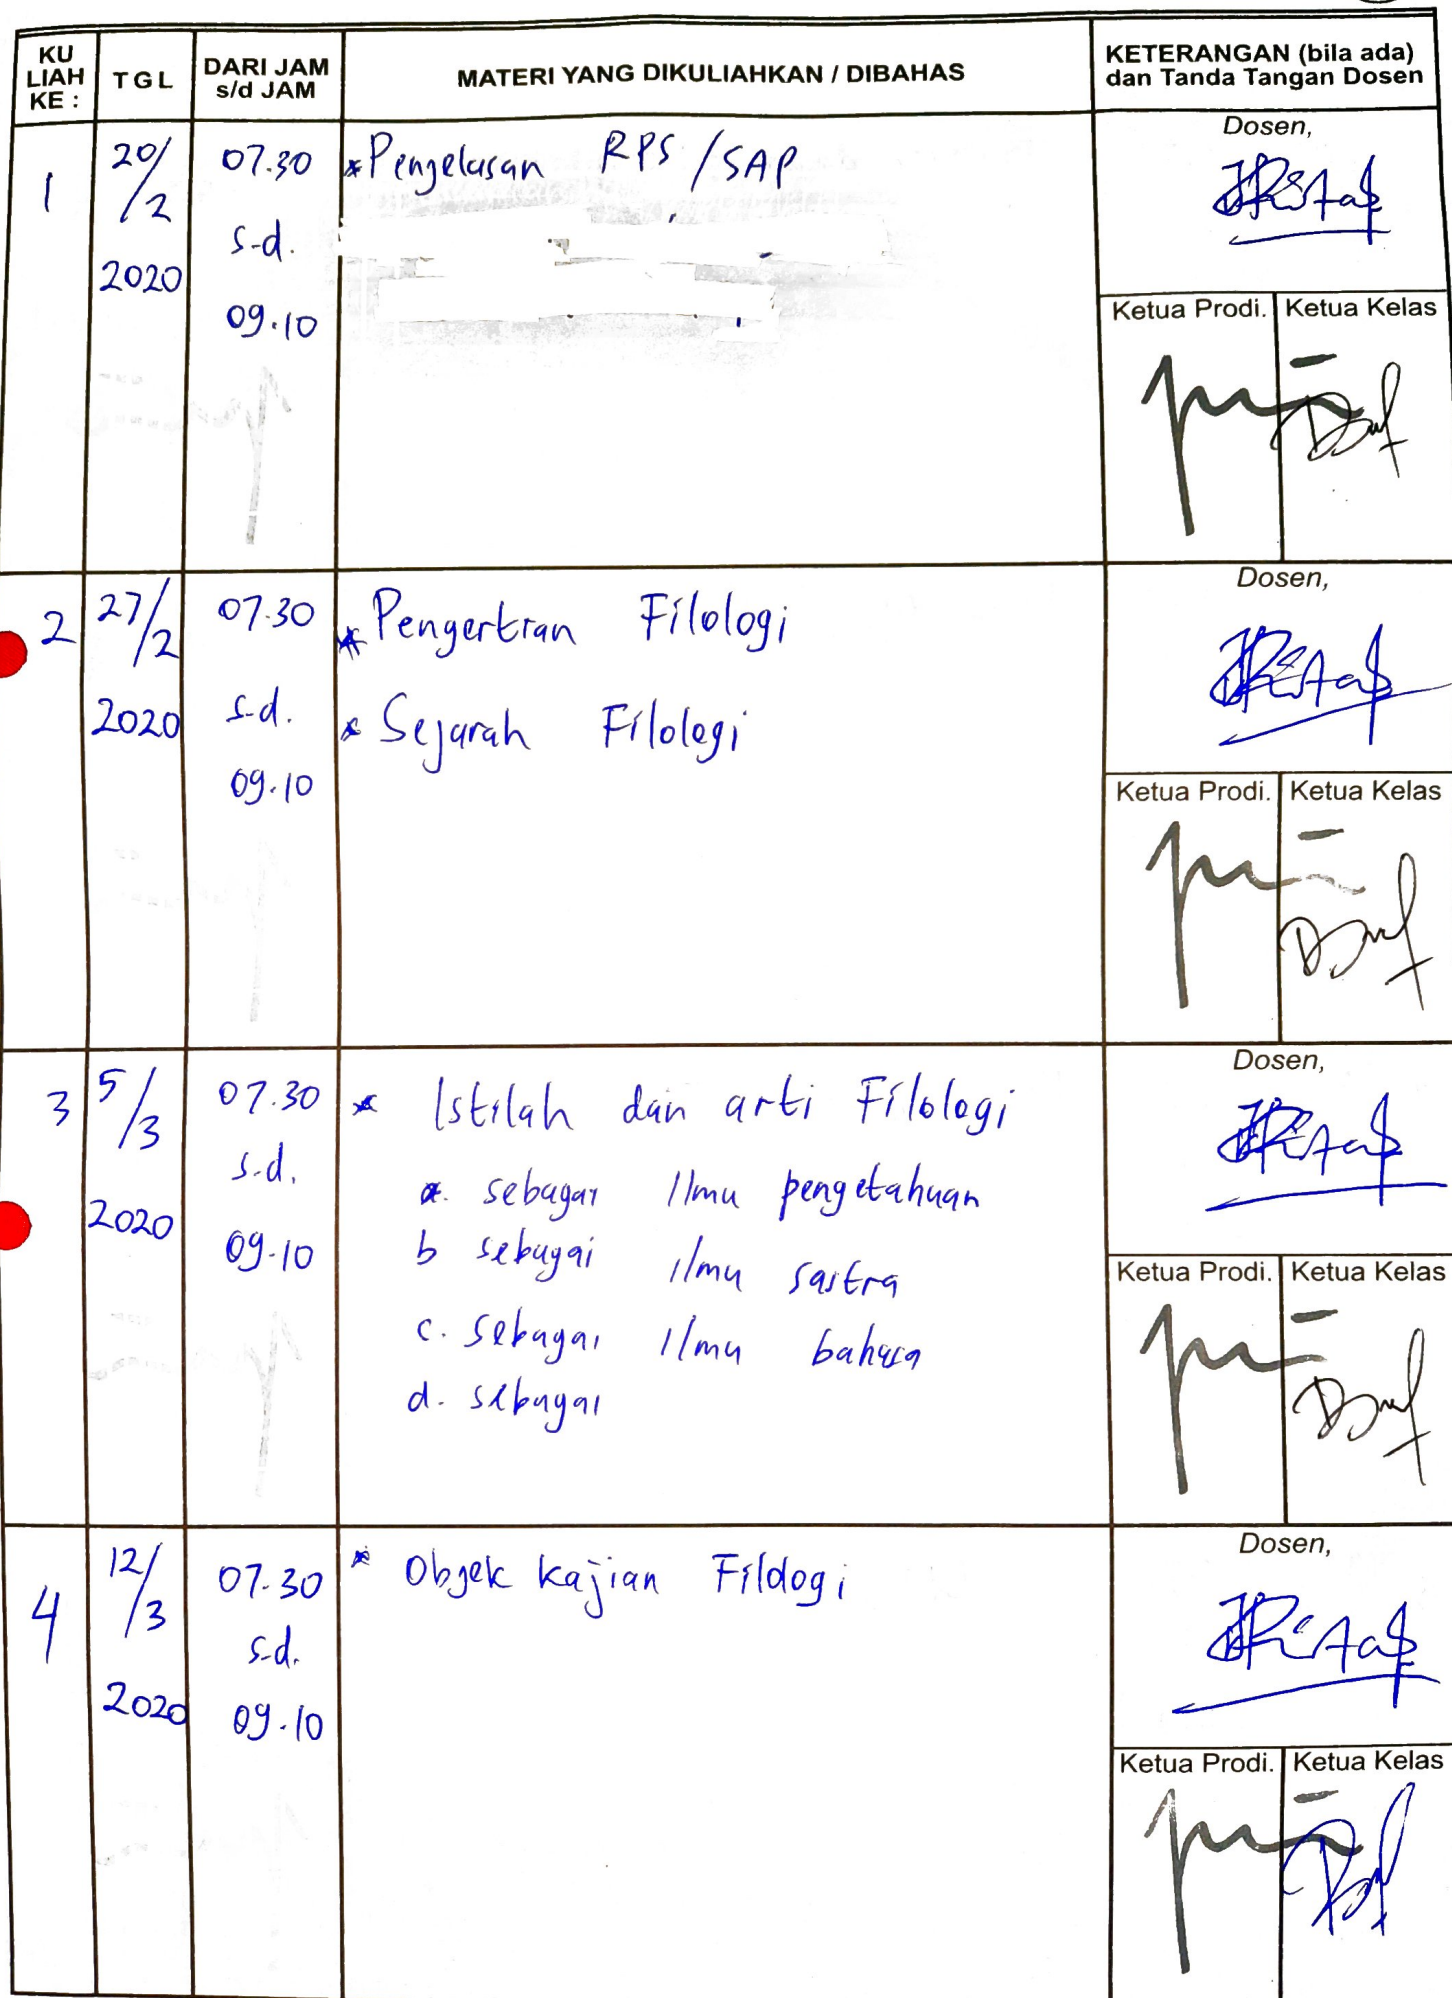 KU LIAH KE :
TGL
DARI JAM s/d JAM
MATERI YANG DIKULIAHKAN / DIBAHAS
KETERANGAN (bila ada) dan Tanda Tangan Dosen
1
20/2
2020
07.30
s.d.
09.10
* Penjelasan RPS / SAP
Dosen,
Ketua Prodi.
Ketua Kelas
2
27/2
2020
07.30
s.d.
09.10
* Pengertian Filologi
* Sejarah Filologi
Dosen,
Ketua Prodi.
Ketua Kelas
3
5/3
2020
07.30
s.d.
09.10
* Istilah dan arti Filologi
a. sebagai Ilmu pengetahuan
b sebagai Ilmu sastra
c. sebagai Ilmu bahasa
d. sebagai
Dosen,
Ketua Prodi.
Ketua Kelas
4
12/3
2020
07.30
s.d.
09.10
* Objek kajian Filologi
Dosen,
Ketua Prodi.
Ketua Kelas